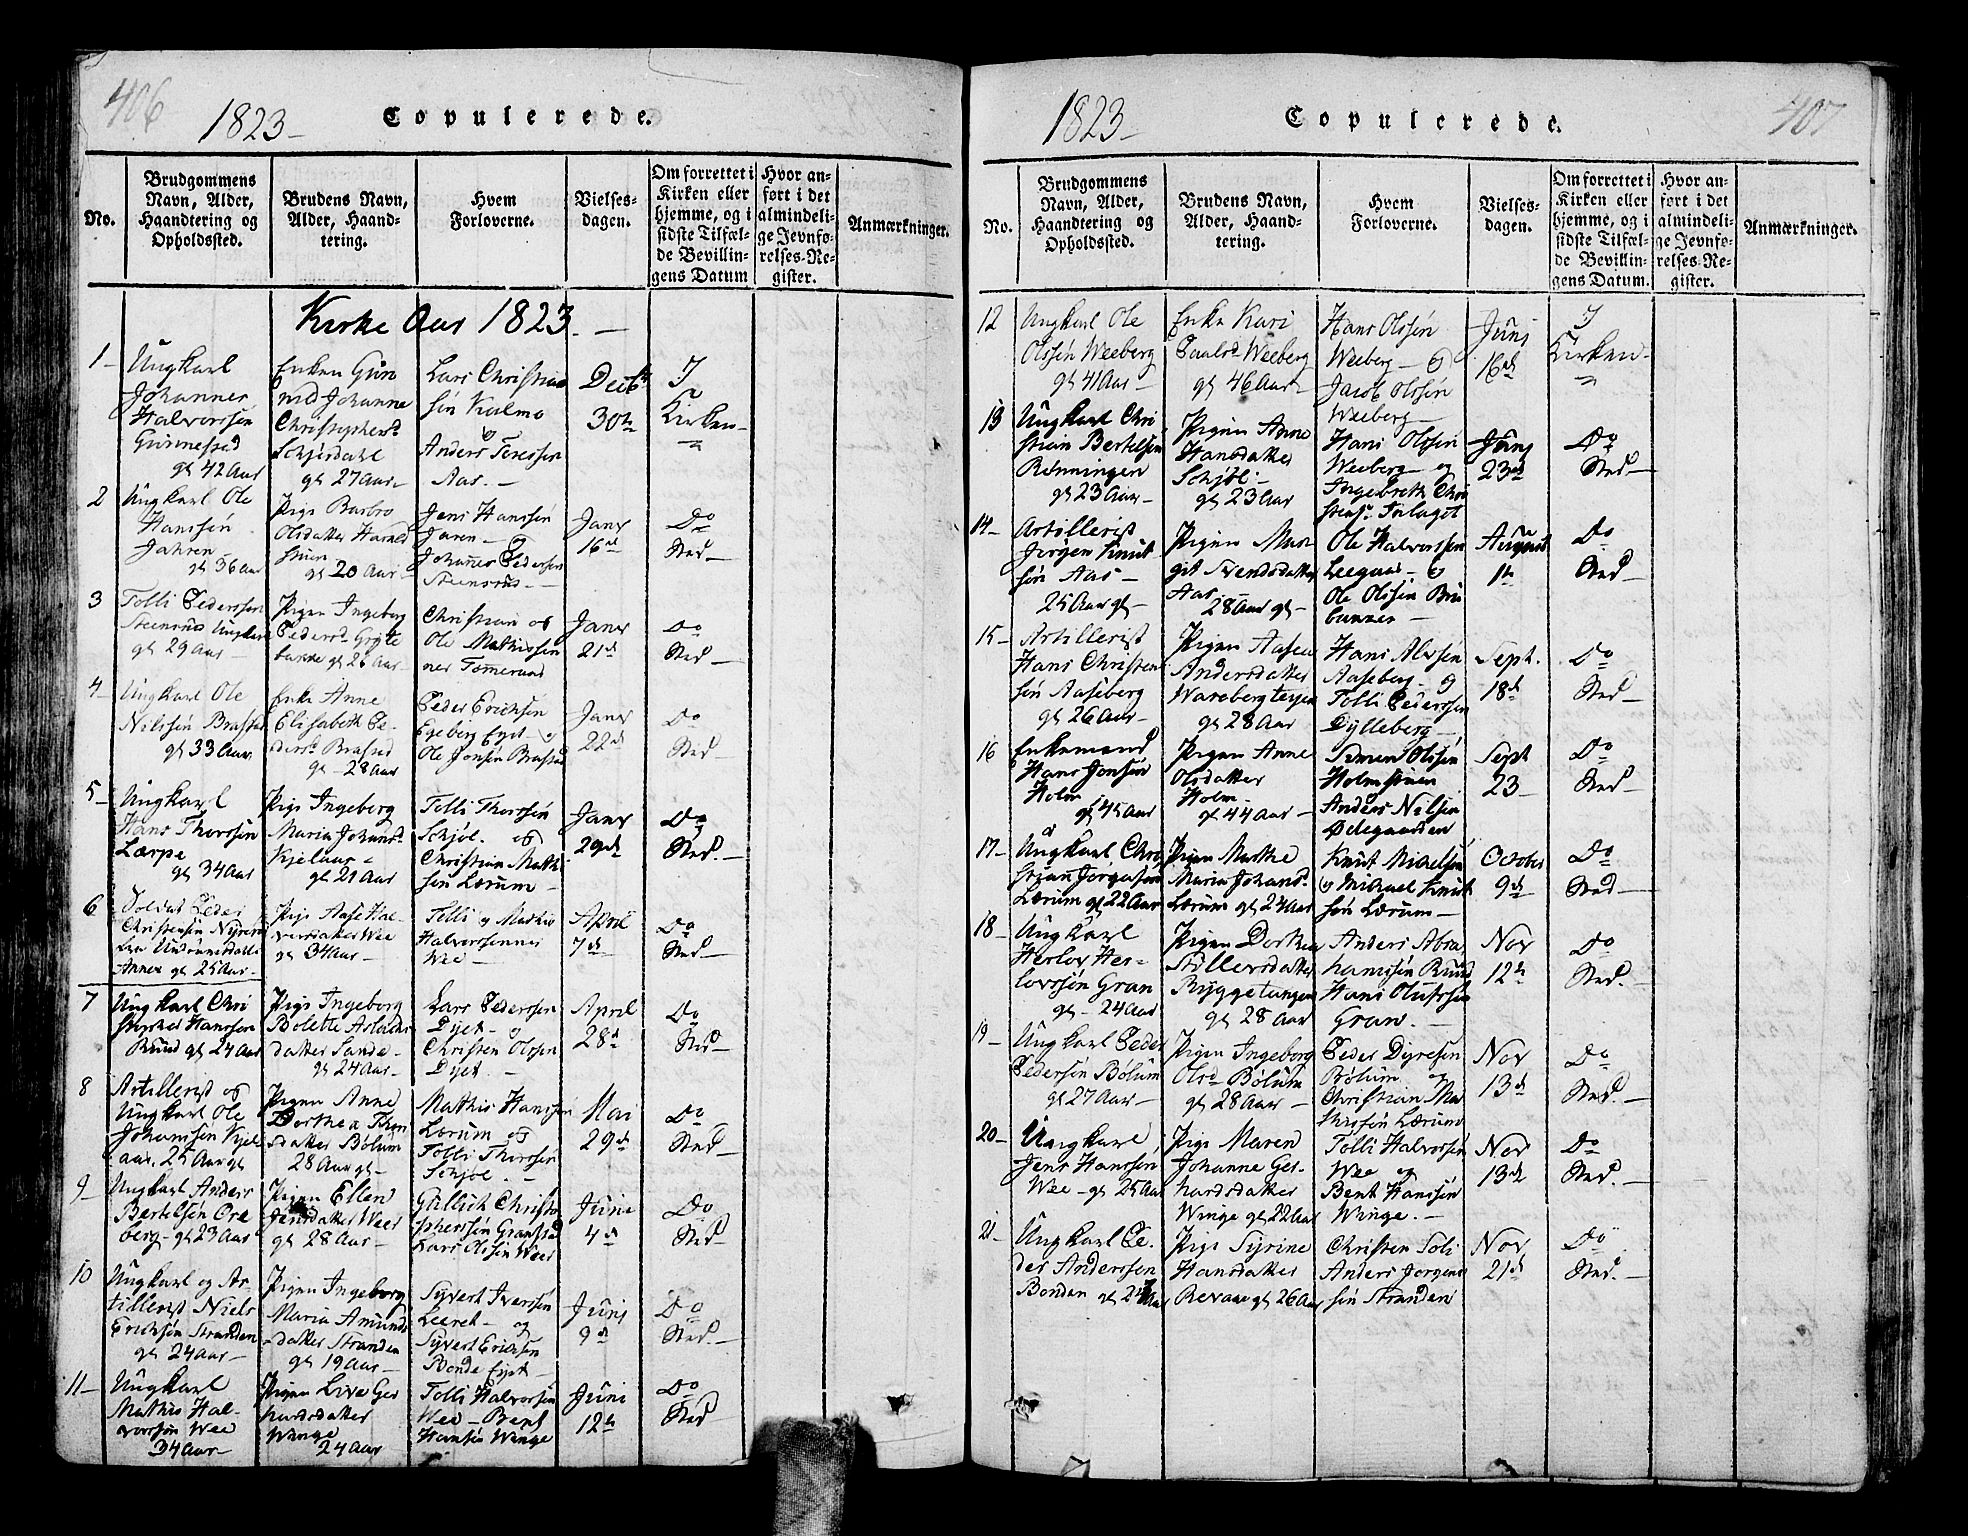 406
1823 –
Copulerede.
No.
Brudgommens
Navn, Alder,
Haandtering og
Opholdssted.
Brudens Navn,
Alder, Haand-
tering.
Hvem
Forloverne.
Vielses-
dagen.
Om forrettet i
Kirken eller
hjemme, og i
sidste Tilfæl-
de Bevillin-
gens Datum
Hvor an-
ført i det
almindeli-
ge Jevnfø-
relses-Re-
gister.
Anmærkninger.
Kirke Aar 1823. –
1 –
Ungkarl
Johannes
Halvorssön
gl 42 Aar
Enken
Johanne
gl 27 Aar –
Lars Christian
sön Kalmo
Anders
Aas. –
Decbr
30te
I
Kirken –
2
Ungkarl Ole
Hanssön
Jahren –
gl 36 Aar
Pige Barbro
Olsdatter
gl 20 Aar –
Jens Hanssön
Jaren – og
Johannes Pedersen
Janr
16de
Do
Sted –
3
Tolli Pederssön
Ungkarl
gl 29 Aar –
Pigen Ingeborg
Pedersd.
gl 26 Aar –
Christian og
Ole Mathissön
ner Tomerud
Janr
21de
Do
Sted –
4 –
Ungkarl Ole
Nilssön
gl 33 Aar
Enke Anne
Elisabeth Pe-
dersd.
gl – 28 Aar
Peder Erichsön
Egeberg
Ole Jonsön
Janr
22de
Do
Sted –
5 –
Ungkarl
Hans Thorssön
Lærpe
gl 34 Aar
Pige Ingeborg
Maria
gl 21 Aar
Tolli Thorssön
Schjöl. og
Christian Math
sön Lærum –
Janr
29de
Do
Sted. –
6
Soldat Peder
Christensön
gl 25 Aar –
Pige Aase Hal
vorsdatter Wee
gl 34 Aar –
Tolli og Mathis
Halvorssönner
Wee –
April
7de
Do
Sted –
7
Ungkarl Chri
stopher Hanssön
Ruud gl 24 Aar
Pige Ingeborg
Bolette
datter Sande –
gl 24 Aar –
Lars Pederssön
Dyet – og
Christen Olssön
Dyet. –
April
28de
Do
Sted –
8
Artillerist og
Ungkarl Ole
Johanssön Kjel
aas. 25 Aar gl
Pigen Anne
Dorthea
datter Bölum
28 Aar gl –
Mathis Hanssön
Lærum og
Tolli Thorssön
Schjöl. –
Mai
29de
Do
Sted –
9 –
Ungkarl Anders
Bertelsön Ore
berg – gl 23 Aar
Pigen Ellen
Jensdatter Weer
gl 28 Aar –
Gullich Christo
phersön
Lars Olssön Weer
Junii
4de
Do
Sted –
10
Ungkarl og Ar-
tillerist Niels
Erichsön Stranden
gl 24 Aar –
Pigen Ingeborg
Maria Amunds
datter Stranden
gl 19 Aar –
Syvert Iverssön
Leeret – og
Syvert Erichsön
Junj
9de
Do
Sted –
11 –
Ungkarl
Mathis Hal-
vorssön Wee
34 Aar –
Pigen Live Ger
hardsdatter
Winge
24 Aar
Tolli Halvorssön
Wee – Bent
Hansön Winge
Junii
12te
Do
Sted –
407
1823 –
Copulerede.
No.
Brudgommens
Navn, Alder,
Haandtering og
Opholdssted.
Brudens Navn,
Alder, Haand-
tering.
Hvem
Forloverne.
Vielses-
dagen.
Om forrettet i
Kirken eller
hjemme, og i
sidste Tilfæl-
de Bevillin-
gens Datum.
Hvor an-
ført i det
almindeli-
ge Jevnfø-
relses-Re-
gister.
Anmærkninger.
12
Ungkarl Ole
Olssön Weeberg
gl 41 Aar –
Enke Kari
Paulsd Weeberg
gl 46 Aar –
Hans Olssön
Weeberg – og
Jacob Olssön
Weeberg –
Junj
16de
I
Kirken –
13
Ungkarl Chri
stian Bertelsen
Rönningen
gl 23 Aar –
Pigen Anne
Hansdatter
Schjöl –
gl 23 Aar
Hans Olssön
Weeberg – og
Ingebreth Chri
stens.
Junj
23de
Do
Sted –
14 –
Artillerist
Jörgen Knut
sön Aas –
25 Aar gl –
Pigen Mar
git Svendsdatter
Aas. –
28 Aar gl –
Ole Halvorssön
Leegaar – og
Ole Olssön Bru
August
1te
Do
Sted –
15 –
Artillerist
Hans Christen
sön Aaseberg
gl 26 Aar –
Pigen Aasen
Andersdatter
gl 28 Aar
Hans Alvsön
Aaseberg – og
Tolli Pederssön
Dylleberg –
Sept.
18de
Do
Sted –
16
Enkemand
Hans Jonsön
Holm
gl 45 Aar
Pigen Anne
Olsdatter
Holm –
gl 44 Aar –
Simen Olssön
Holmstuen
Anders Nilsön
Ödegaarden
Sept
23 –
Do
Sted –
17 –
Ungkarl Chri
stian Jörgensön
Lærum gl 22 Aar
Pigen Marthe
Maria Johansd.
Lærum gl 24 Aar
Knut Michelsön
og Michael Knut
sön Lærum –
October
9de
Do
Sted –
18 –
Ungkarl
Herlov Her-
lovssön Gran
gl – 24 Aar
Pigen Dorthea
Stillersdatter
Ryggetangen
gl 28 Aar
Anders Abra
hamssön Ruud
Hans Olufssön
Gran. –
Nov
12te
Do
Sted. –
19 –
Ungkarl Peder
Pedersön Bölum
gl 27 Aar –
Pigen Ingeborg
Olsd Bölum
gl 28 Aar –
Peder Dyresön
Bölum og
Christian Ma
thisön Lærum
Nov
13de
Do
Sted. –
20 –
Ungkarl
Jens Hanssön
Wee – gl 25 Aar
Pige Maren
Johanne Ger-
hardsdatter
Winge gl 22 Aar
Tolli Halvorssön
Wee og
Bent Hanssön
Winge. –
Nov
13de
Do
Sted. –
21 –
Ungkarl Pe-
der Anderssön
Bonden
Pige Syrine
Hansdatter
Revaae gl 26 Aar
Christen Toli
Anders Jörgens
sön Stranden
Nov
21de
Do
Sted. –